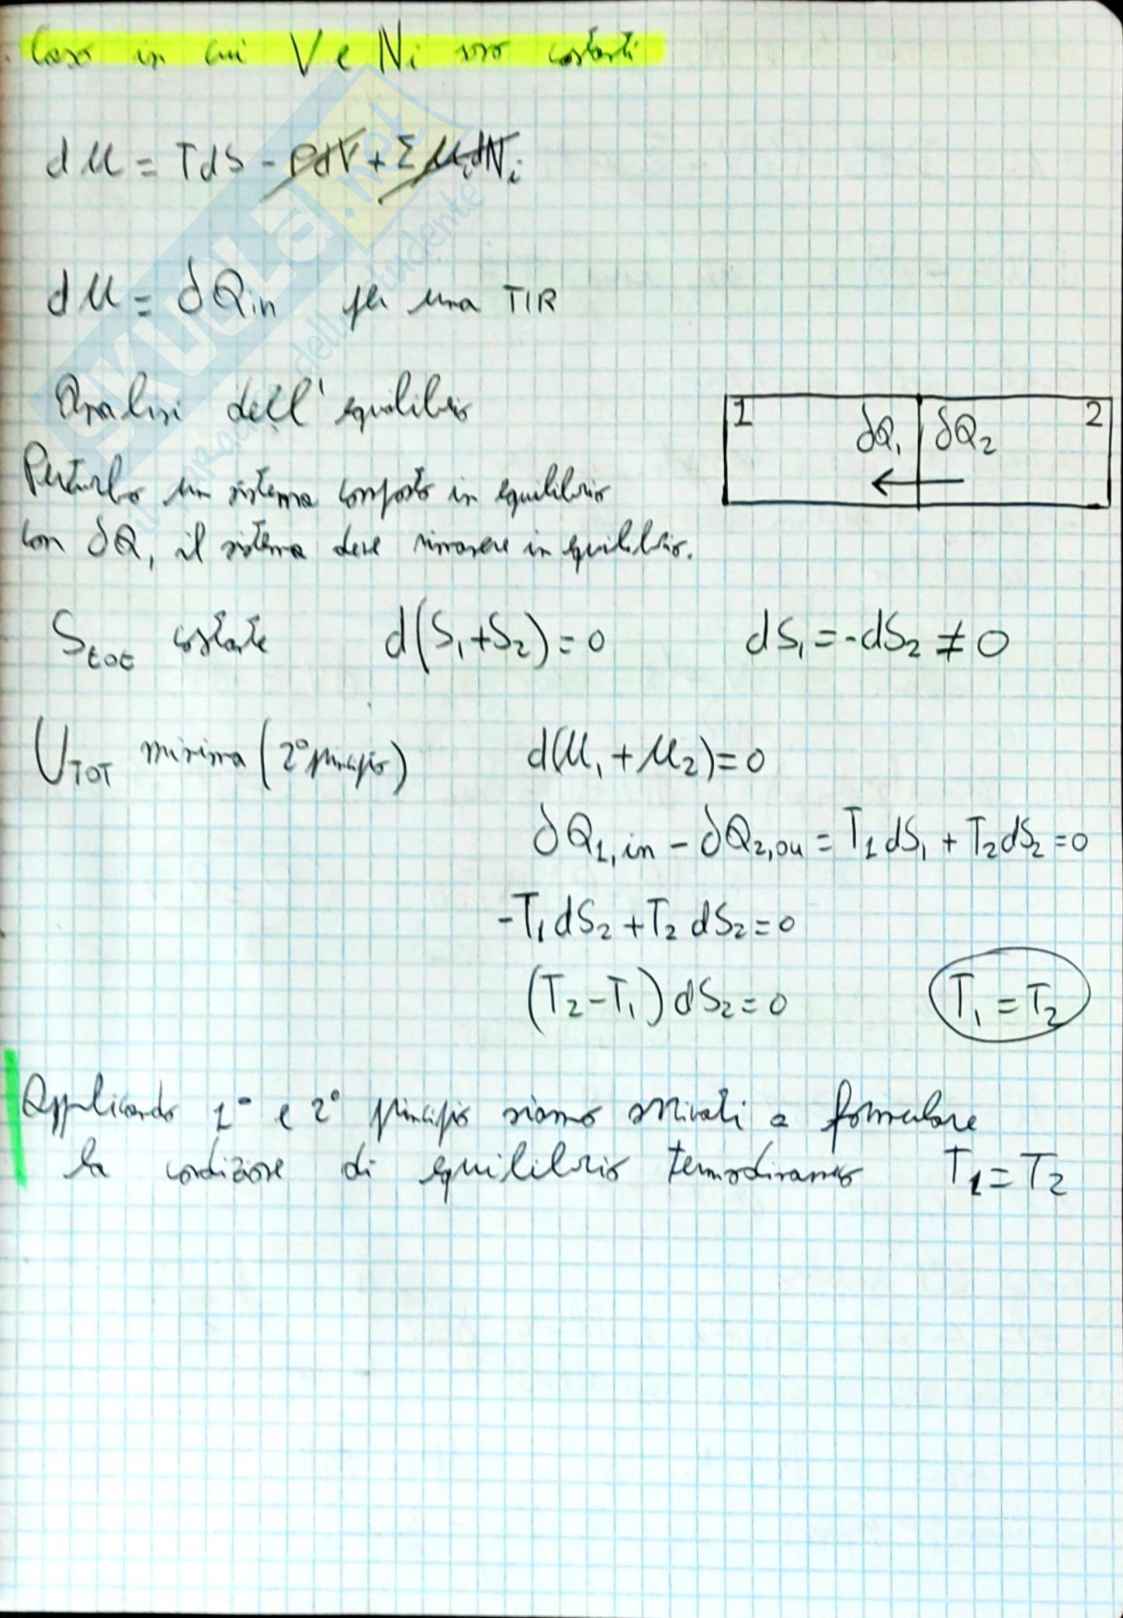 Caso in cui V e Ni sono costanti
dU = TdS - PdV + Σ μidNi
dU = δQin per una TIR
Analisi dell'equilibrio
1 δQ1 δQ2 2
Perturbo un sistema composto in equilibrio
con δQ, il sistema deve rimanere in equilibrio.
Stot costante d(S1+S2)=0 dS1=-dS2≠0
UTOT minima (2° principio) d(U1+U2)=0
δQ1,in - δQ2,ou = T1dS1 + T2dS2=0
-T1dS2+T2dS2=0
(T2-T1)dS2=0 T1=T2
Applicando 1° e 2° principio siamo arrivati a formulare
la condizione di equilibrio termodinamico T1=T2
SKUOLA.net